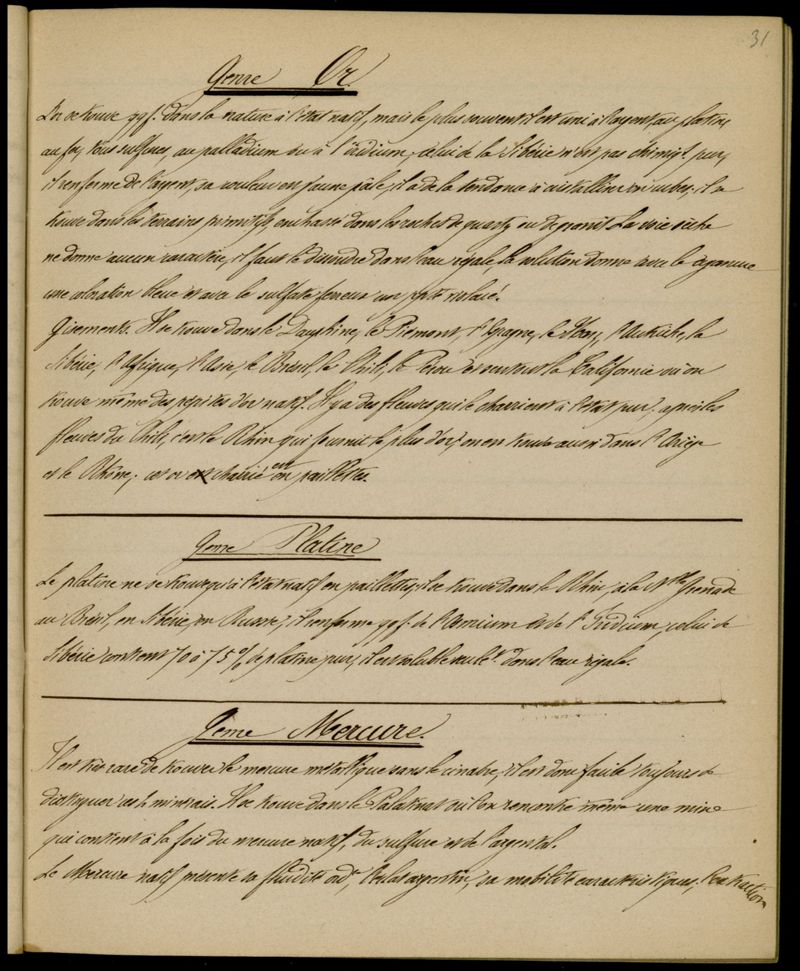 31
Genre Or.
L'or se trouve qqf. dans la nature à l'état natif, mais le plus souvent il est uni à l'argent, au platine
au fer, sous sulfures, au palladium ou à l'iridium, celui de la Sibérie n'est pas chimiqt. pur,
il renferme de l'argent, sa couleur en jaune pâle, il a de la tendance à cristalliser en cubes, il se
trouve dans les terrains primitifs, enchassé dans les roches de quartz ou de granit. La voie sèche
ne donne aucun caractère, il faut le dissoudre dans l'eau régale, la solution donne avec le cyanure
une coloration bleue et avec le sulfate ferreux un ppté violacé.
Gisements. Il se trouve dans le Dauphiné, le Piémont, l'Espagne, le Harz, l'Autriche, la
Sibérie, l'Afrique, l'Asie, le Brésil, le Chili, le Pérou et surtout la Californie où on
trouve même des pépites d'or natif. Il y a des fleuves qui le charrient à l'état pur, après les
fleuves du Chili, c'est le Rhin qui fournit le plus d'or, on en trouve aussi dans l'Ariège
et le Rhône; cet or est charrié en paillettes.
Genre Platine
Le platine ne se trouve qu'à l'état natif en paillettes, il se trouve dans le Rhin, à la Nlle Grenade
au Brésil, en Sibérie, en Russie, il renferme qqf. de l'Osmium et de l'Iridium, celui de
Sibérie contient 70 à 75 % de platine pur, il est soluble seult. dans l'eau régale.
Genre Mercure.
Il est très rare de trouver le mercure métallique sans le cinabre, il est donc facile toujours de
distinguer ces 2 minerais. Il se trouve dans le Palatinat où l'on rencontre même une mine
qui contient à la fois du mercure natif, du sulfure et de l'argental.
Le Mercure natif présente sa fluidité ordre, l'éclat argentin, sa mobilité caractéristiques; l'extraction